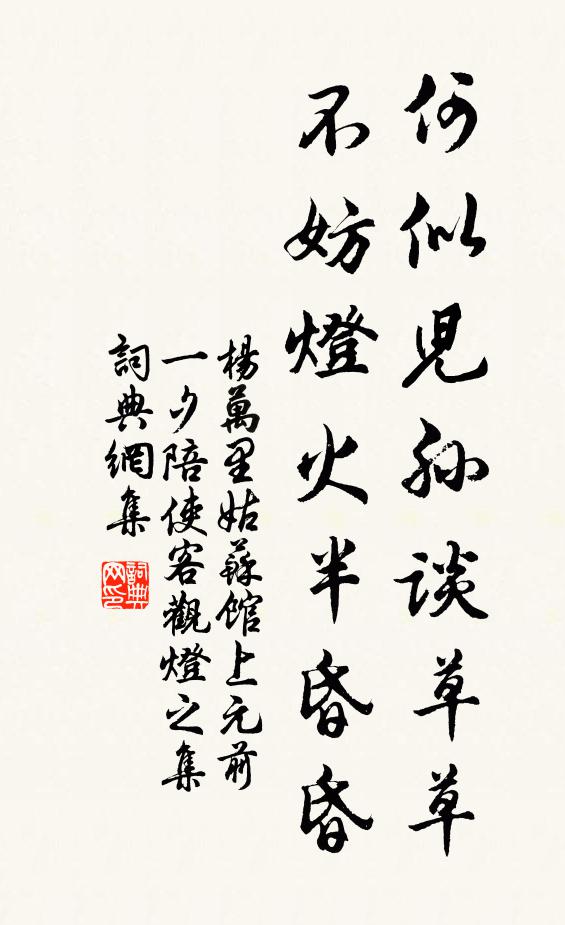 何似兒孫談草草
不妨燈火半昏昏
楊萬里姑蘇館上元前
一夕陪使客觀燈之集
詞典網集
詞典
网印